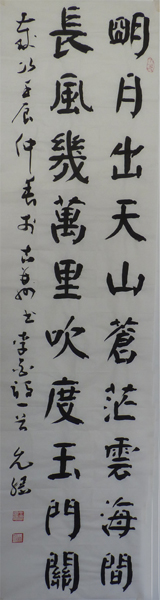 明月出天山蒼茫雲海間
長風幾萬里吹度玉門關
歲次壬辰仲春於古姑書李白詩一首